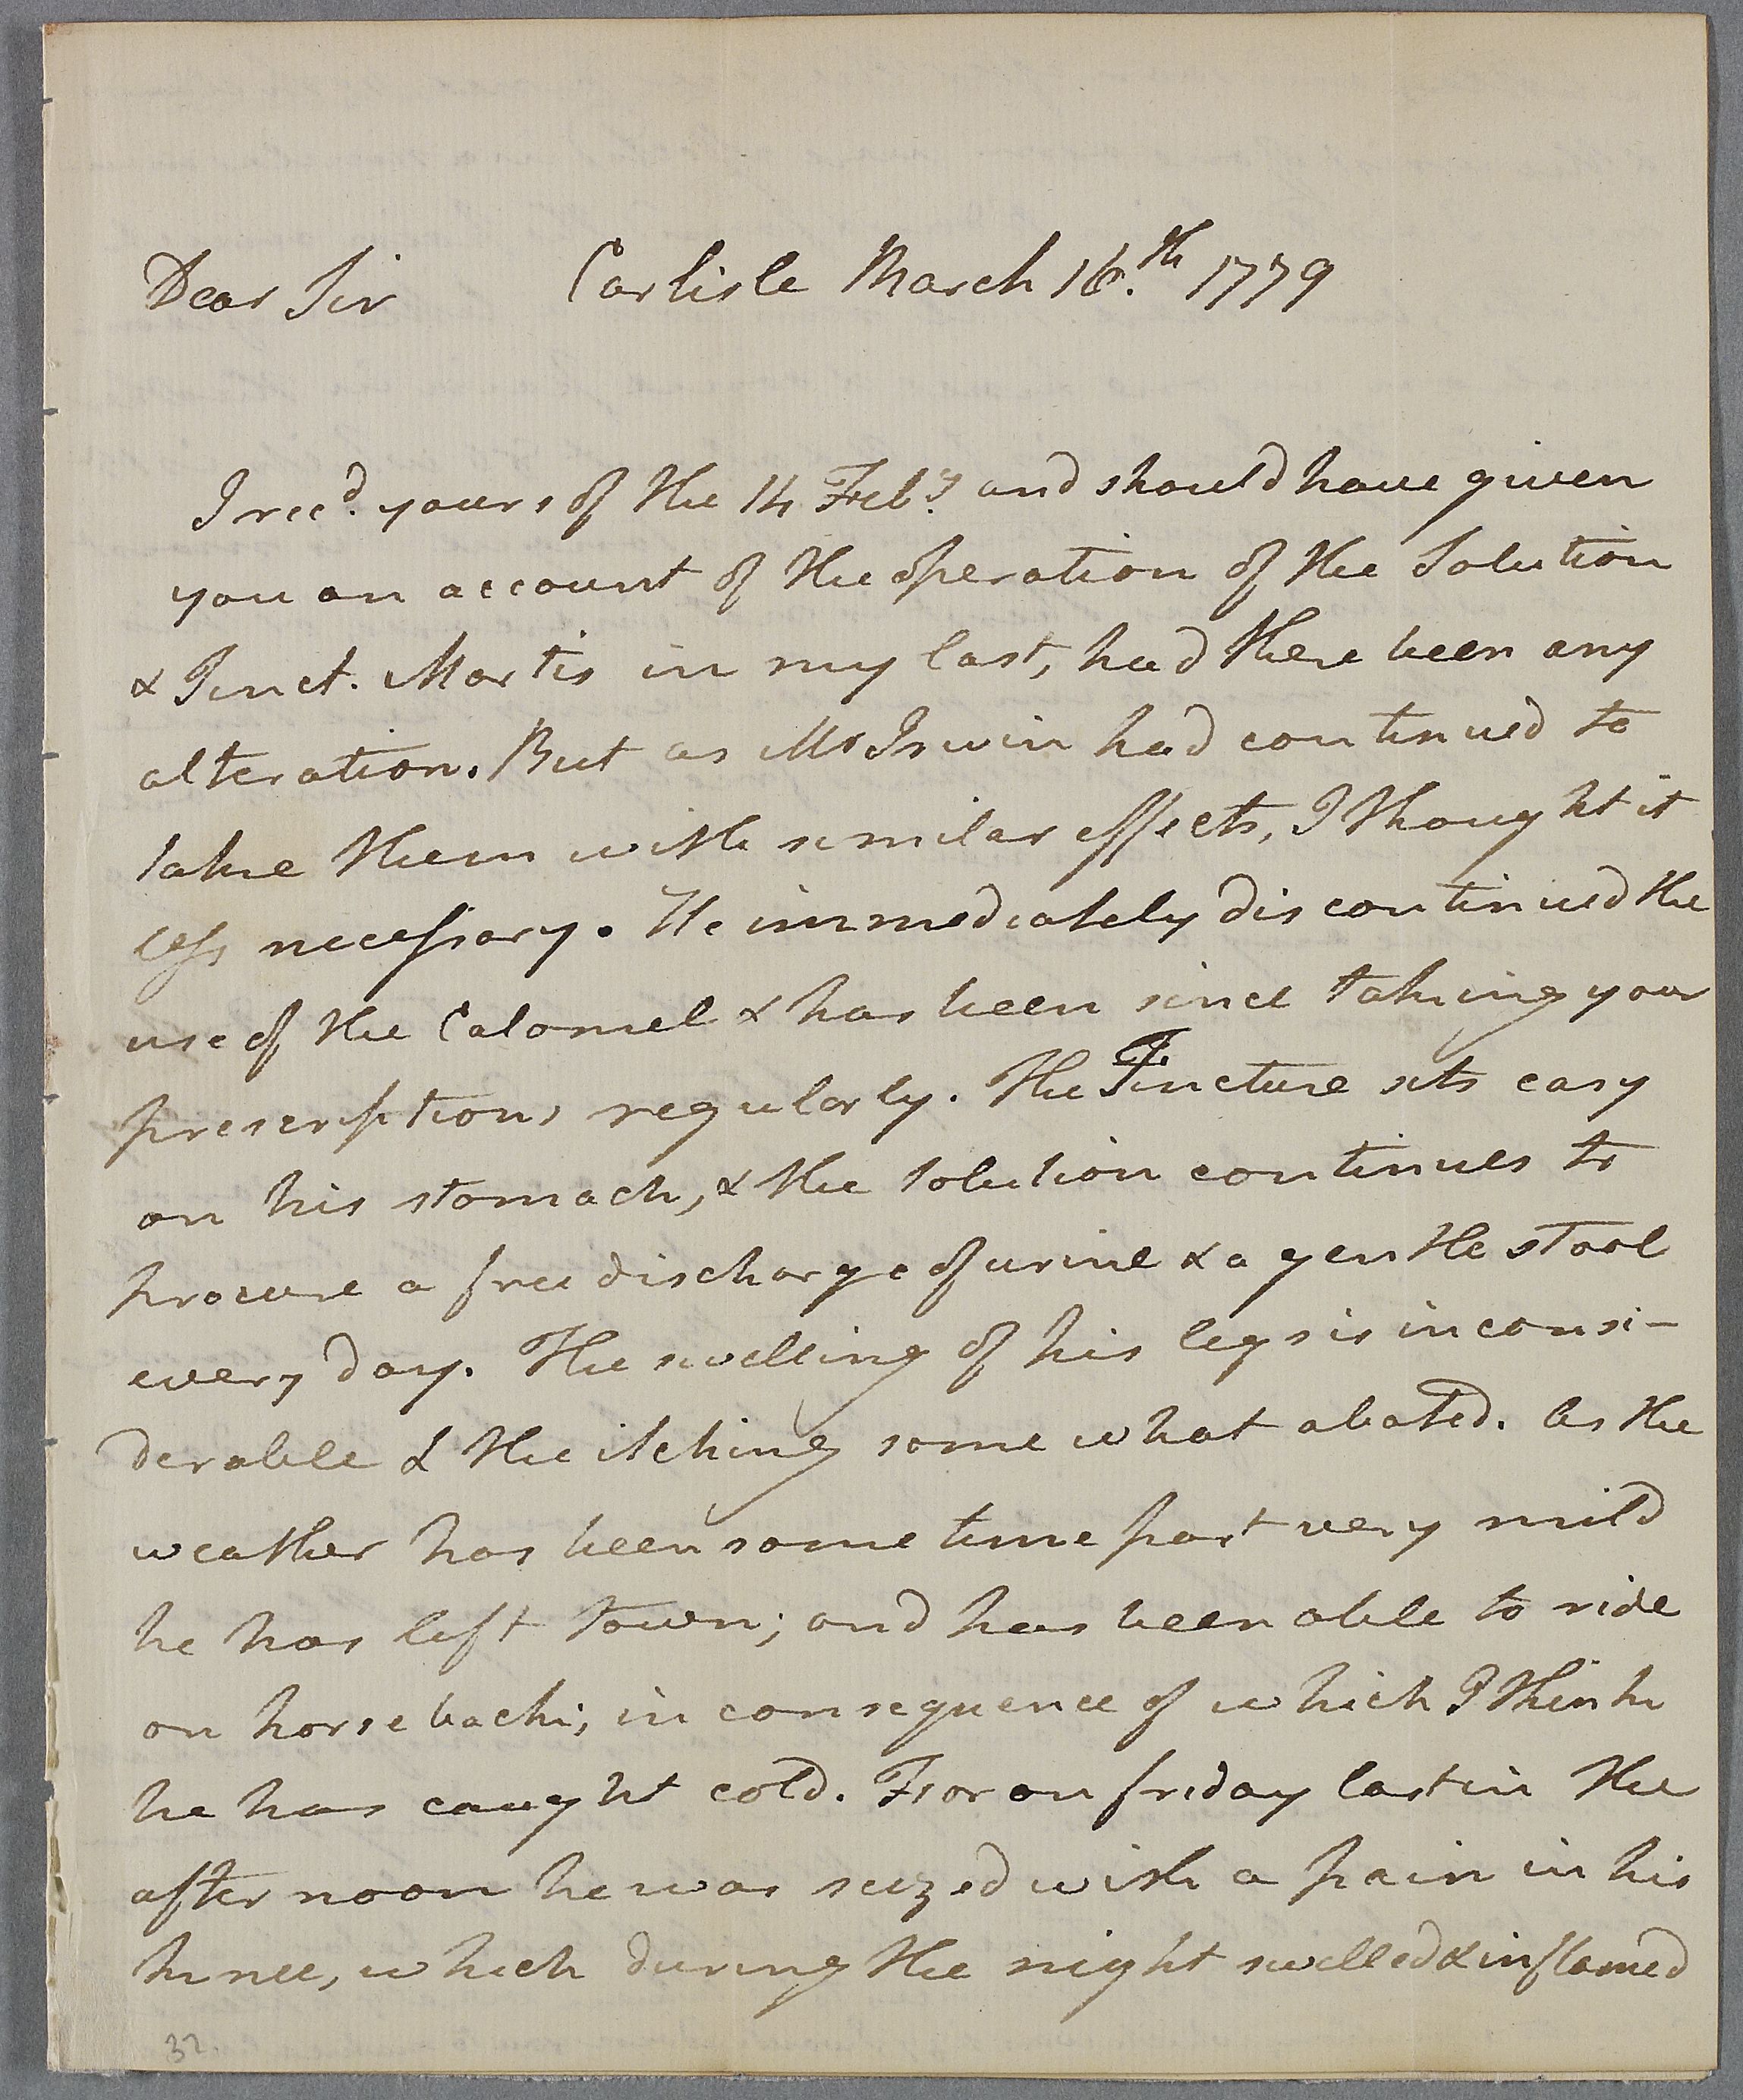 Dear Sir Carlisle March 16.th 1779
I recd. yours of the 14 Feby. and should have given
you an account of the operation of the Solution
& Tinct. Martis in my last, had there been any
alteration. But as Mr Irwin had continued to
take them with similar effects, I thought it
less necessary. He immediately discontinued the
use of the Calomel & has been since taking your
prescriptions regularly. The Tincture sits easy
on his stomach, & the Solution continues to
procure a free discharge of urine & a gentle stool
every day. The swelling of his legs is inconsi-
derable & the itching some what abated. As the
weather has been some time past very mild
he has left town; and has been able to ride
on horse back; in consequence of which I think
he has caught cold. For on friday last in the
after noon he was seized with a pain in his
knee, which during the night swelled & inflamed
32.